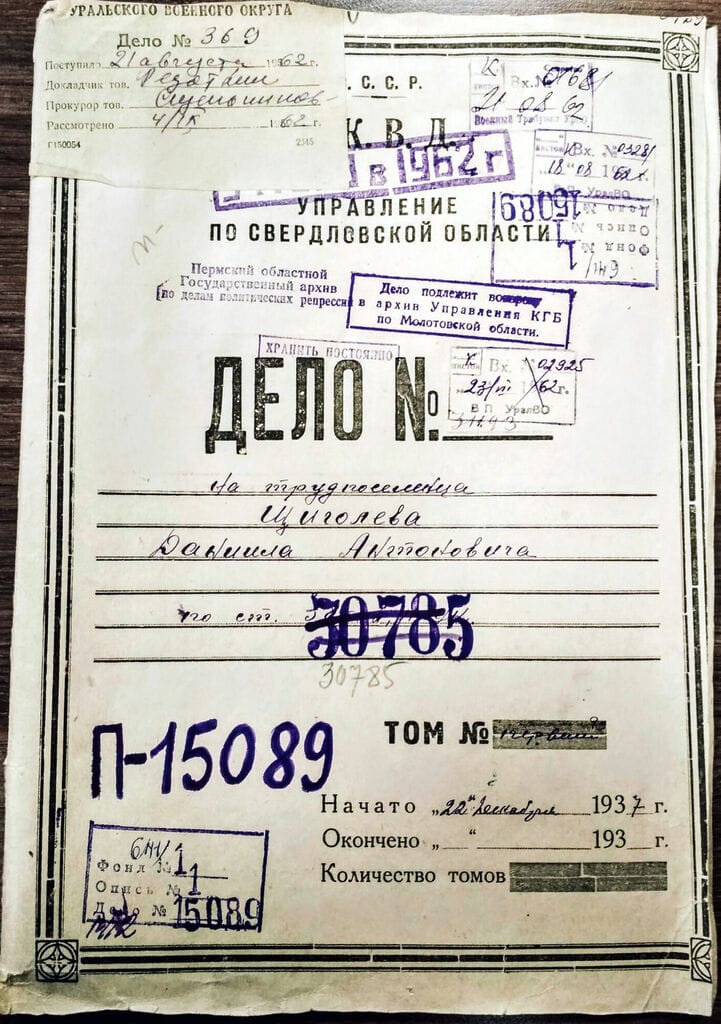 УРАЛЬСКОГО ВОЕННОГО ОКРУГА
Дело № 369
Поступило 21 августа 1962 г.
Докладчик тов.
Прокурор тов.
Рассмотрено 4/IX 1962 г.
Г150054 2545
С. С. Р.
К. В. Д.
в 1962 г
Вх. №
21 08 62
Военный Трибунал
Вх. № 03281
"18" 08
УралВО
УПРАВЛЕНИЕ
ПО СВЕРДЛОВСКОЙ ОБЛАСТИ
Фонд № 1
Опись № 1
Дело № 15089
Пермский областной
Государственный архив
по делам политических репрессий
Дело подлежит возврату
в архив Управления КГБ
по Молотовской области.
ХРАНИТЬ ПОСТОЯННО
Вх. № 02925
23/VII 1962 г.
ВП УралВО
ДЕЛО №
На трудпоселенца
Щиголева
Даниила Антоновича
по ст.
30785
30785
П-15089
ТОМ № первый
Начато „22" декабря 1937 г.
Окончено „ " 193 г.
Количество томов
Фонд № 1
Опись № 1
Дело № 15089